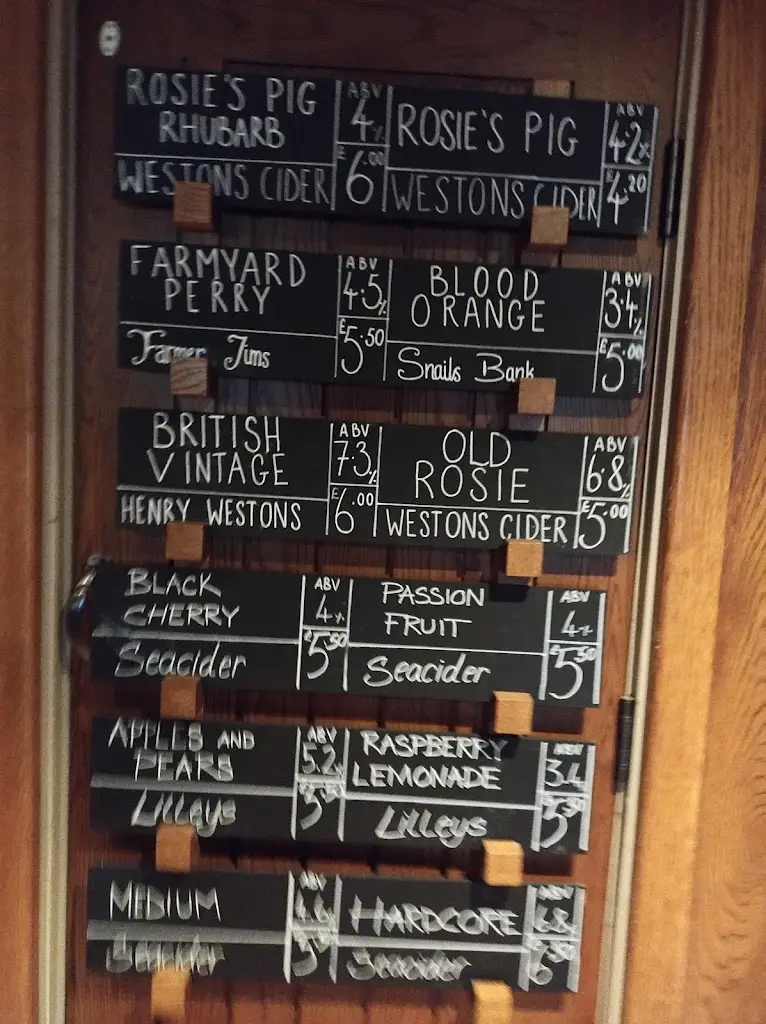 ROSIE'S PIG
RHUBARB
ABV
4%
WESTONS CIDER
£6.00
ROSIE'S PIG
ABV
4.2%
WESTONS CIDER
£4.20
FARMYARD
PERRY
ABV
4.5%
Farmer Jims
£5.50
BLOOD
ORANGE
ABV
3.4%
Snails Bank
£5.00
BRITISH
VINTAGE
ABV
7.3%
HENRY WESTONS
£6.00
OLD
ROSIE
ABV
6.8%
WESTONS CIDER
£5.00
BLACK
CHERRY
ABV
4%
Seacider
£5.50
PASSION
FRUIT
ABV
4%
Seacider
£5.50
APPLES AND
PEARS
ABV
5.2%
Lilleys
RASPBERRY
LEMONADE
ABV
3.4
Lilleys
£5.50
MEDIUM
ABV
Seacider
HARDCORE
ABV
6.8%
Seacider
£6.50